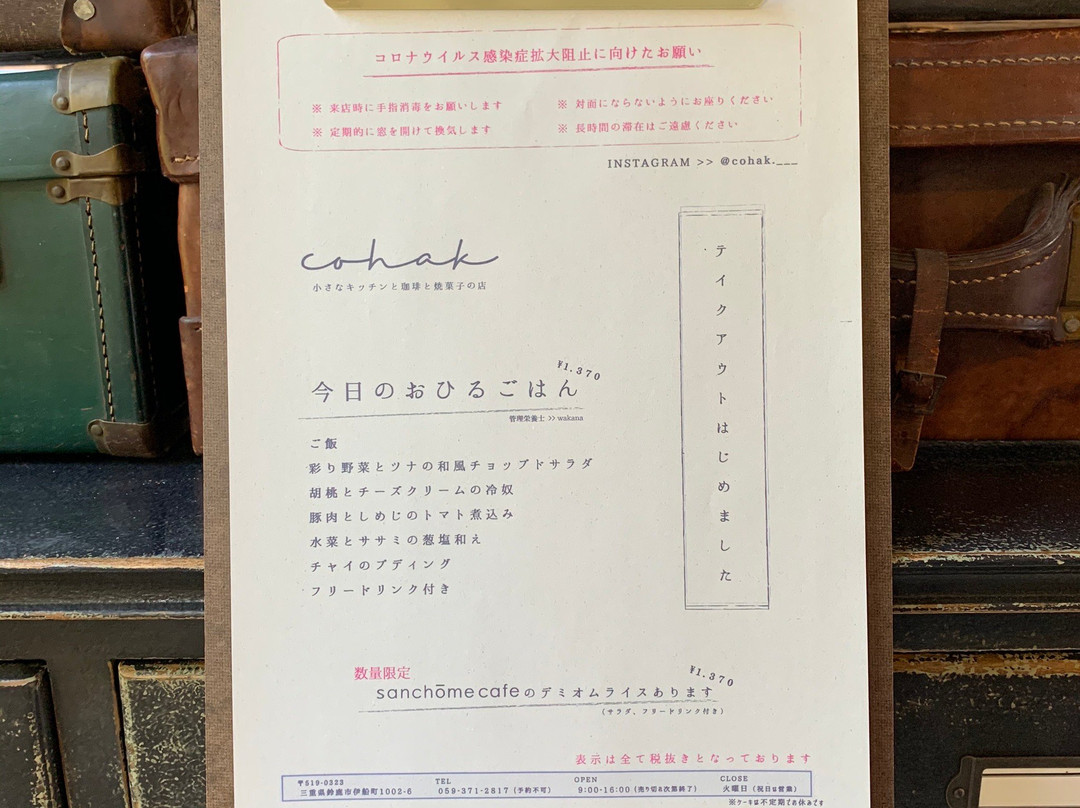 コロナウイルス感染症拡大阻止に向けたお願い
※ 来店時に手指消毒をお願いします
※ 対面にならないようにお座りください
※ 定期的に窓を開けて換気します
※ 長時間の滞在はご遠慮ください
INSTAGRAM >> @cohak.___
cohak
小さなキッチンと珈琲と焼菓子の店
テイクアウトはじめました
¥1.370
今日のおひるごはん
管理栄養士 >> wakana
ご飯
彩り野菜とツナの和風チョップドサラダ
胡桃とチーズクリームの冷奴
豚肉としめじのトマト煮込み
水菜とササミの葱塩和え
チャイのプディング
フリードリンク付き
数量限定
¥1.370
sanchōme cafeのデミオムライスあります
(サラダ、フリードリンク付き)
表示は全て税抜きとなっております
〒519-0323
三重県鈴鹿市伊船町1002-6
TEL
059-371-2817 (予約不可)
OPEN
9:00-16:00 (売り切れ次第終了)
CLOSE
火曜日 (祝日は営業)
※ケーキは不定期でお休みです